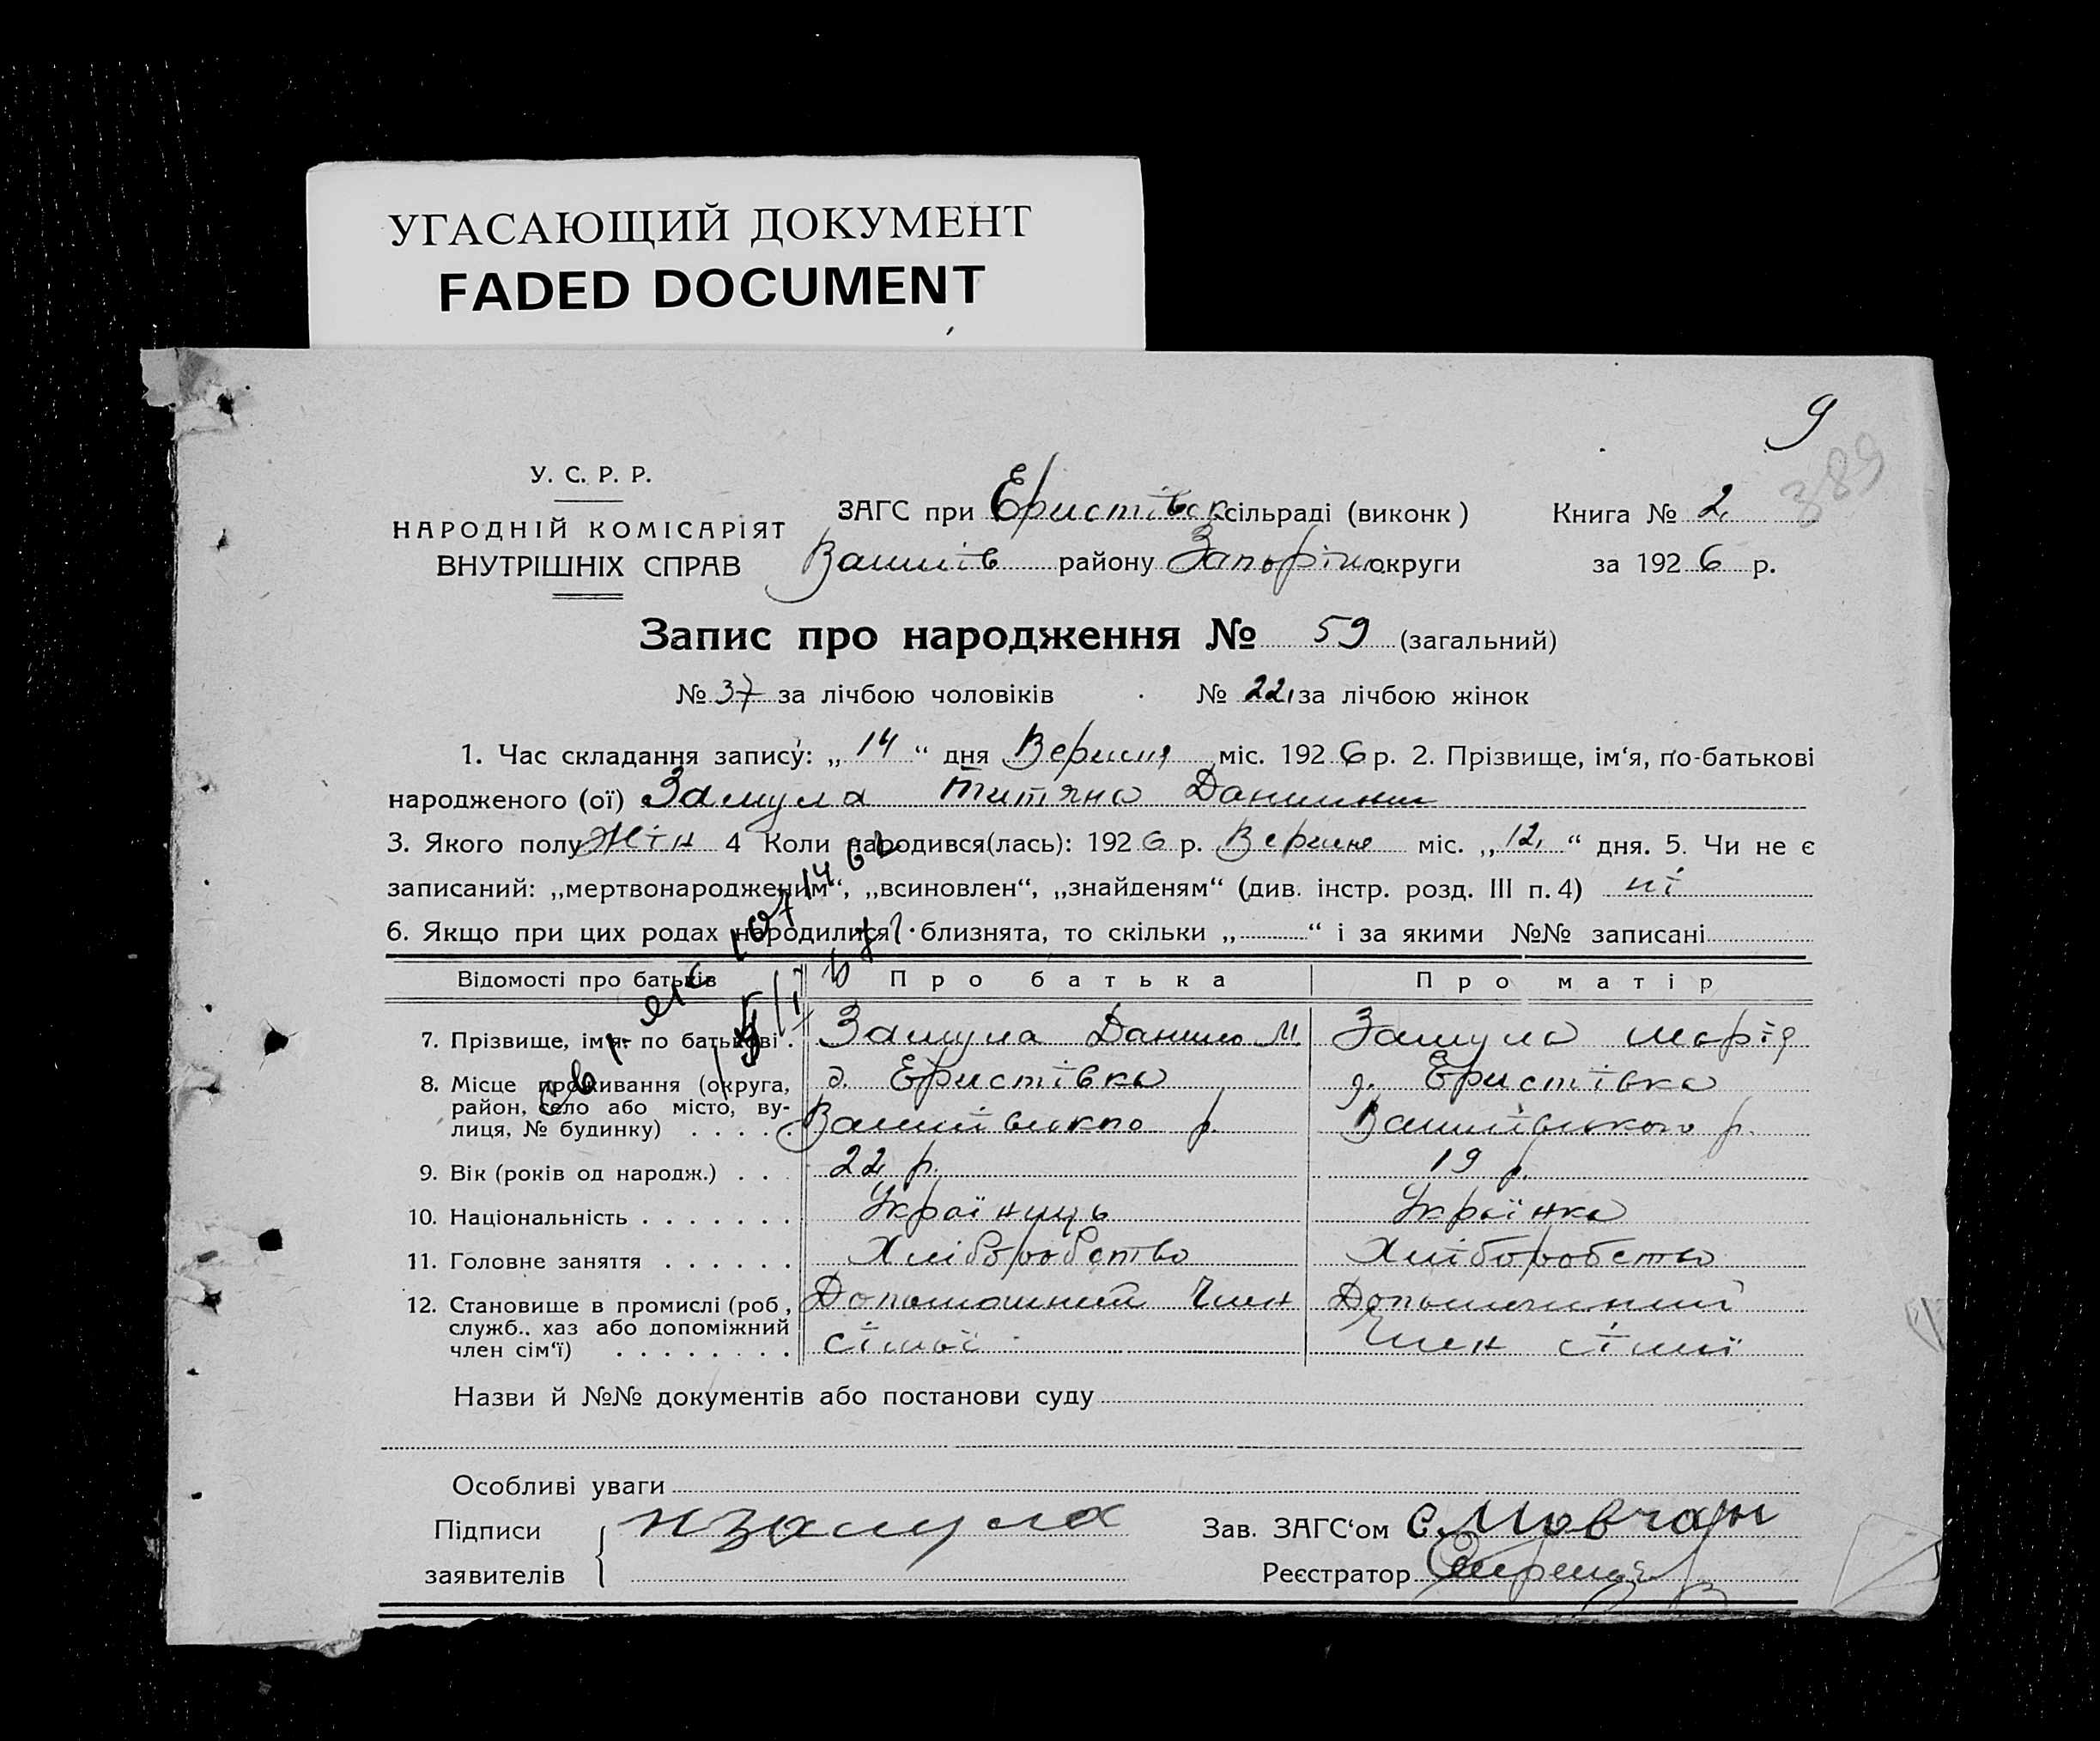 УГАСАЮЩИЙ ДОКУМЕНТ
FADED DOCUMENT
9
389
У. С. Р. Р.
НАРОДНІЙ КОМІСАРІЯТ
ВНУТРІШНІХ СПРАВ
ЗАГС при Еристівск сільраді (виконк)
району Запоріж округи
Книга № 2
за 1926 р.
Запис про народження № 59 (загальний)
№ 37 за лічбою чоловіків № 22 за лічбою жінок
1. Час складання запису: „14“ дня Вересня міс. 1926 р. 2. Прізвище, ім'я, по-батькові
народженого (ої) Замула Титяна
3. Якого полу Жін 4 Коли народився(лась): 1926 р. Вересня міс. „12“ дня. 5. Чи не є
записаний: „мертвонародженим“, „всиновлен“, „знайденям“ (див. інстр. розд. III п. 4) ні
6. Якщо при цих родах народилися близнята, то скільки „ “ і за якими №№ записані
Відомості про батьків Про батька Про матір
7. Прізвище, ім'я, по батькові Замула Данило М. Замула Марія
8. Місце проживання (округа, д. Еристівка д. Еристівка
район, село або місто, ву-
лиця, № будинку) р. р.
9. Вік (років од народж.) 22 р. 19 р.
10. Національність Українць Українка
11. Головне заняття Хліборобство Хліборобство
12. Становище в промислі (роб, Член
служб., хаз або допоміжний
член сім'ї) сімьї Член сімї
Назви й №№ документів або постанови суду
Особливі уваги
Підписи
заявителів
Замула
Зав. ЗАГС'ом С. Мовчан
Реєстратор